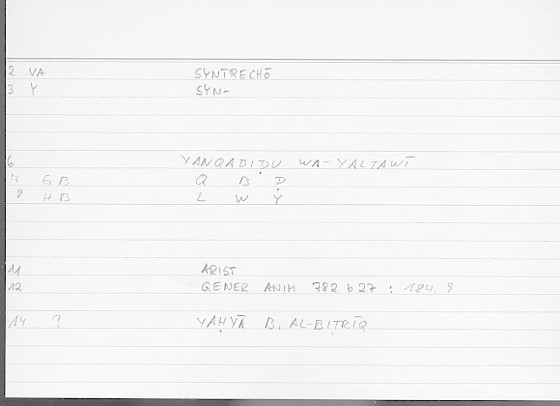 2 VA SYNTRECHŌ
3 Y SYN-
6 YANQABIḌU WA-YALTAWĪ
7 GB Q B Ḍ
8 HB L W Y
11 ARIST
12 GENER ANIM 782 b 27 : 184, 9
14 ? YAḤYĀ B. AL-BIṬRĪQ